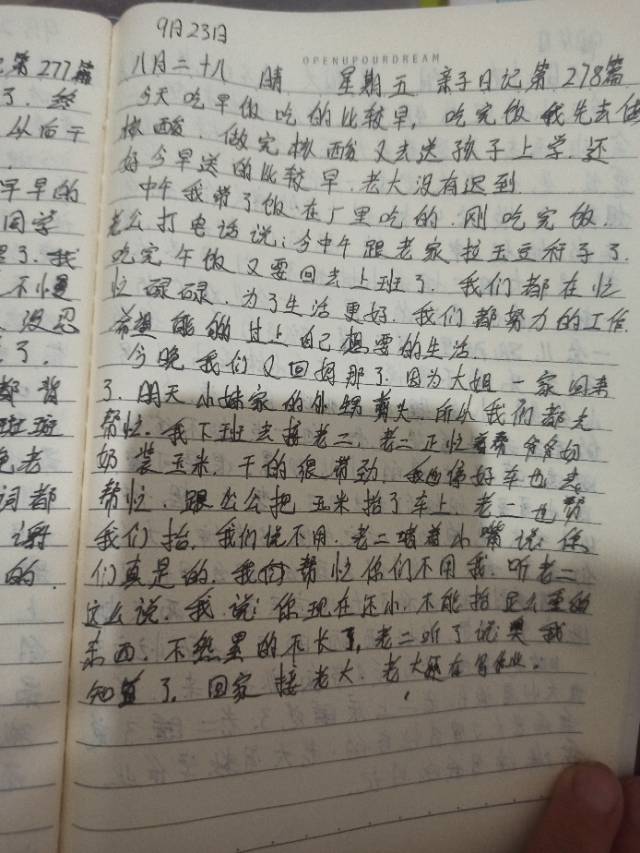 9月23日
OPENUPOURDREAM
八月二十八 晴 星期五 亲子日记第278篇
今天吃早饭吃的比较早,吃完饭我先去做
核酸.做完核酸又去送孩子上学.还
好今早送的比较早.老大没有迟到.
中午我带了饭.在厂里吃的.刚吃完饭.
老公打电话说:今中午跟老家拉玉豆秆子了.
吃完午饭又要回去上班了.我们都在忙
忙碌碌.为了生活更好.我们都努力的工作.
希望能够过上自己想要的生活.
今晚我们又回妈那了.因为大姐一家回来
了.明天小妹家的外甥剪头.所以我们都去
帮忙.我下班去接老二.老二正忙着帮爷爷奶
奶装玉米.干的很带劲.我也停好车也去
帮忙.跟公公把玉米抬了车上.老二也帮
我们抬.我们说不用.老二噘着小嘴说:你
们真是的.我们帮忙你们不用我.听老二
这么说.我说:你现在还小.不能抬这么重的
东西.不然累的不长了,老二听了说 我
知道了.回家接老大.老大还在写作业.
第277篇
了.
从后于
早早的
同学
了.我
不慢
没忍
了.
都背
斑斑
老
词都
谢
的.